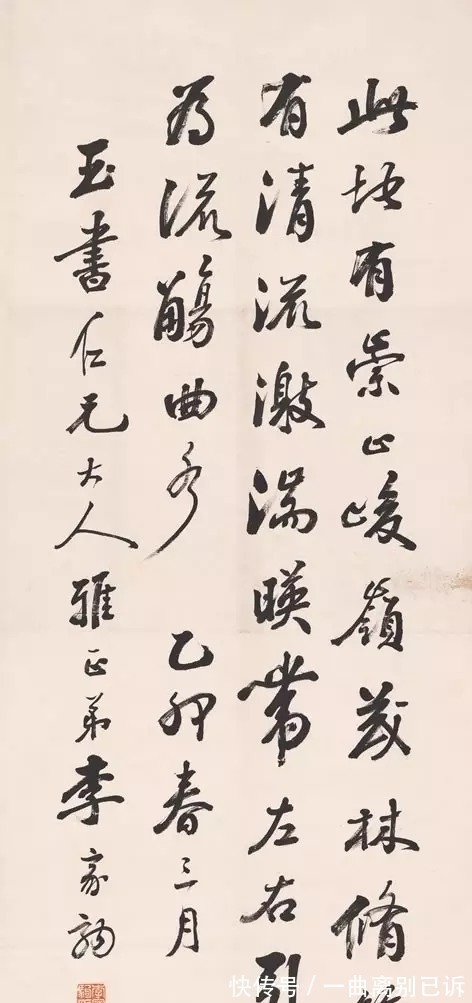 此地有崇山峻嶺茂林脩
有清流激湍暎帶左右引
為流觴曲水 乙卯春三月
玉書仁兄大人雅正弟李家駒
快传号/一曲离别已诉